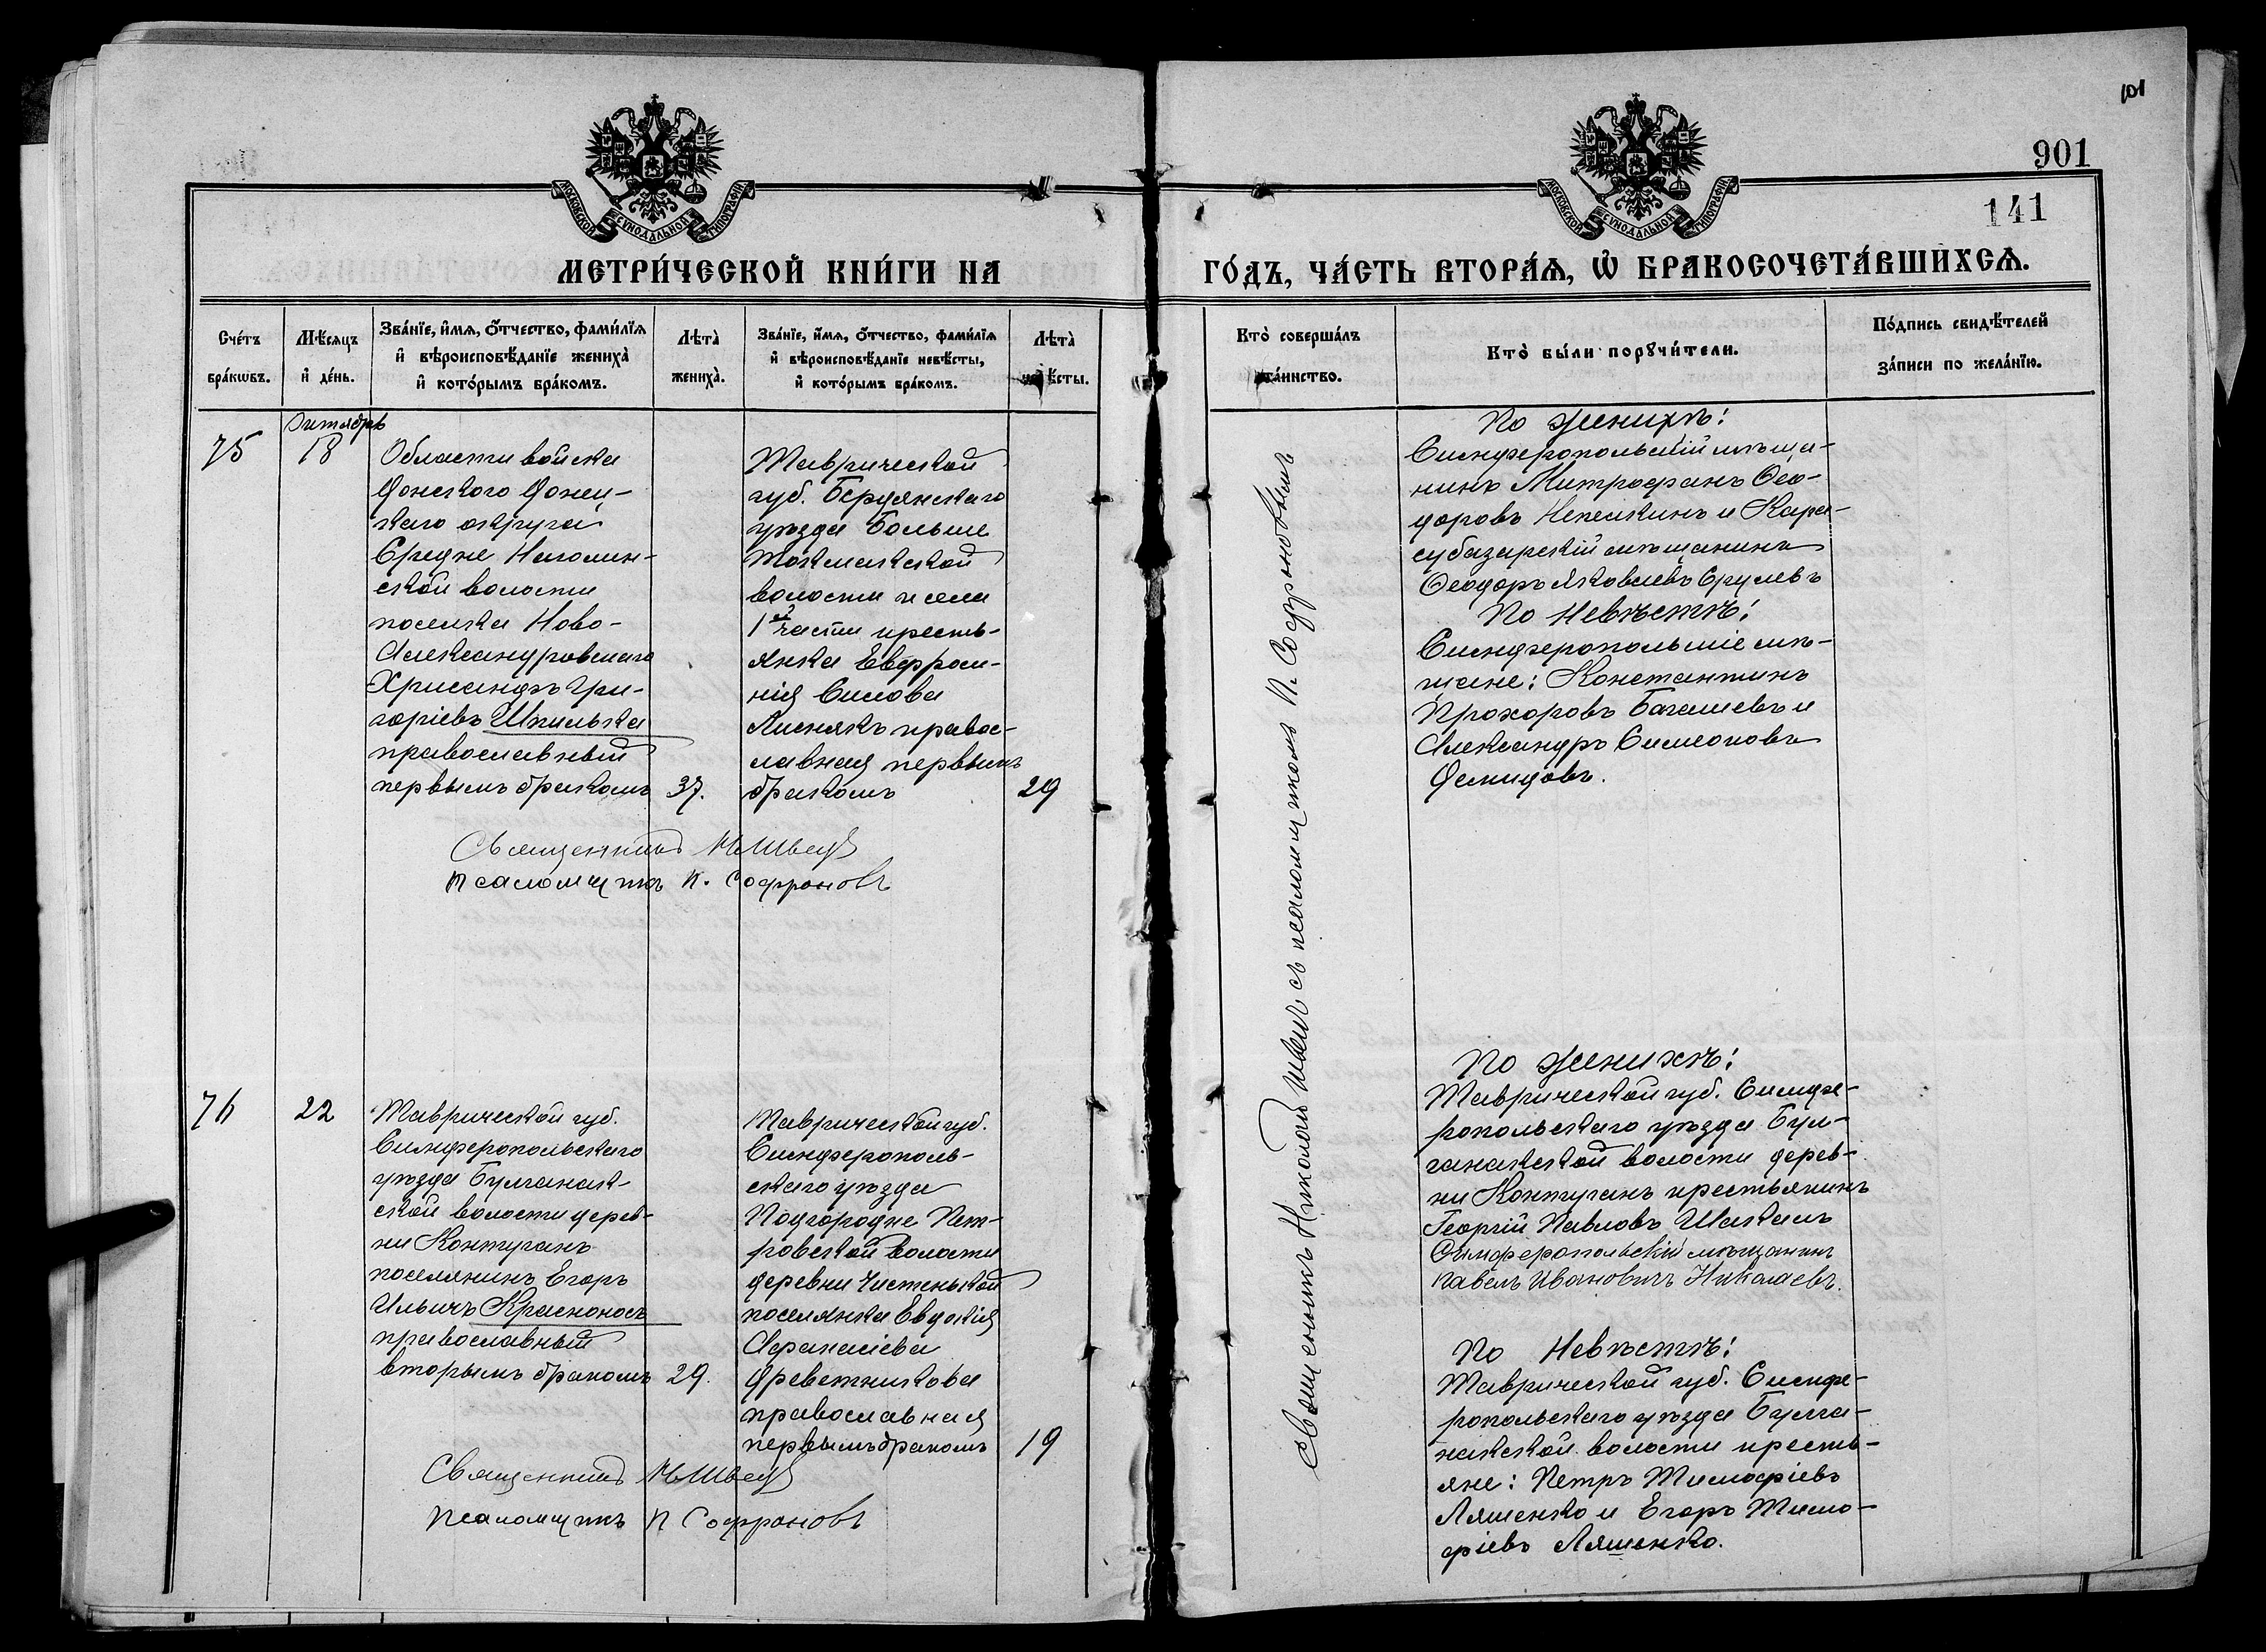 101
901
141
МОСКОВСКОЙ СѴНОДАЛЬНОЙ ТИПОГРАФІИ
МОСКОВСКОЙ СѴНОДАЛЬНОЙ ТИПОГРАФІИ
МЕТРИ́ЧЕСКОЙ КНИ́ГИ НА ГО́ДЪ, ЧА́СТЬ ВТОРА́Я, Ѽ БРАКОСОЧЕТА́ВШИХСЯ.
Сче́тъ бра́кѡвъ.
Мѣ́сяцъ и де́нь.
Зва́нїе, и́мя, ѻ́тчество, фами́лїя
и вѣроисповѣ́данїе жениха̀
и кото́рымъ бра́комъ.
Лѣта̀ жениха̀.
Зва́нїе, и́мя, ѻ́тчество, фами́лїя
и вѣроисповѣ́данїе невѣ́сты,
и кото́рымъ бра́комъ.
Лѣта̀ невѣ́сты.
Кто̀ соверша́лъ
та́инство.
Кто̀ бы́ли порꙋчи́тели.
По́дпись свидѣ́телей
за́писи по жела́нїю.
75
Октябрь
18
Области войска
Донского Донец-
каго округа
Средне Наголин-
ской волости
поселка Ново-
Александровскаго
Хрисанфъ Гри-
горіевъ Шпилька
православный
первымъ бракомъ
37.
Таврической
губ. Бердянскаго
уѣзда Больше
Токмакской
волости и села
1й части кресть-
янка Евфроси-
нія Силова
Лиснякъ правос-
лавная первымъ
бракомъ
29
Священникъ Н. Швецъ
Псаломщикъ П. Софроновъ
Священникъ Николай Швецъ съ псаломщикомъ П. Софроновымъ
По женихѣ:
Симферопольскій мѣща-
нинъ Митрофанъ Ѳео-
доровъ Непекинъ и Кара-
субазарскій мѣщанинъ
Ѳеодоръ Яковлевъ Срулевъ
По Невѣстѣ:
Симферопольшіе мѣ-
щане: Константинъ
Прохоровъ Багашевъ и
Александръ Симеоновъ
Демидовъ.
76
22
Таврической губ.
Симферопольскаго
уѣзда Булганак-
ской волости дерев-
ни Контуганъ
поселянинъ Егоръ
Ильичъ Красноносъ
православный
вторымъ бракомъ
29.
Таврической губ.
Симферополь-
скаго уѣзда
Подгородне Пет-
ровской волости
деревни Чистенькой
поселянка Евдокія
Афанасіева
Древетникова
православная
первымъ бракомъ
19
Священникъ Н. Швецъ
Псаломщикъ П Софроновъ
По женихѣ:
Таврической губ. Симфе-
ропольскаго уѣзда Бул-
ганакской волости дерев-
ни Контуганъ крестьянинъ
Георгій Павловъ Шакалъ
Симферопольскій мѣщанинъ
Павелъ Ивановичъ Николаевъ.
По Невѣстѣ:
Таврической губ. Симфе-
ропольскаго уѣзда Булга-
накской волости кресть-
яне: Петръ Тимофіевъ
Ляшенко и Егоръ Тимо-
фіевъ Ляшенко.